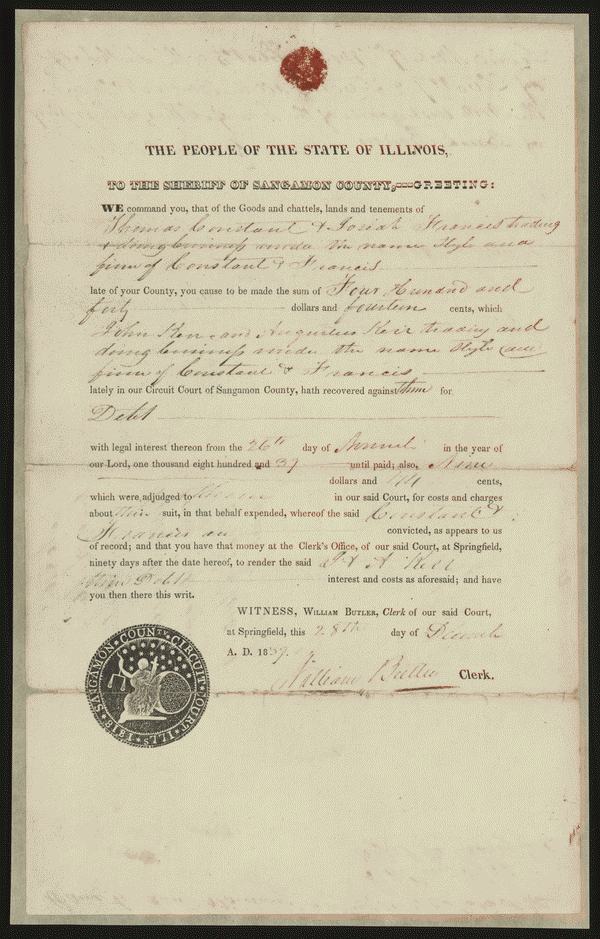 THE PEOPLE OF THE STATE OF ILLINOIS,
TO THE SHERIFF OF SANGAMON COUNTY,—GREETING:
WE command you, that of the Goods and chattels, lands and tenements of
Thomas Constant & Josiah Francis trading
& doing business under the name Style and
firm of Constant & Francis
late of your County, you cause to be made the sum of Four Hundred and
forty dollars and fourteen cents, which
John Kerr and Augustus Kerr trading and
doing business under the name Style and
firm of Constant & Francis
lately in our Circuit Court of Sangamon County, hath recovered against them for
Debt
with legal interest thereon from the 26th day of in the year of
our Lord, one thousand eight hundred and 39 until paid; also, Nine
dollars and cents,
which were adjudged to in our said Court, for costs and charges
about their suit, in that behalf expended, whereof the said Constant &
Francis are convicted, as appears to us
of record; and that you have that money at the Clerk's Office, of our said Court, at Springfield,
ninety days after the date hereof, to render the said J & A Kerr
their Debt interest and costs as aforesaid; and have
you then there this writ.
WITNESS, WILLIAM BUTLER, Clerk of our said Court,
at Springfield, this 28th day of
A. D. 1839.
William Butler Clerk.
SANGAMON COUNTY CIRCUIT COURT ILLS 1819